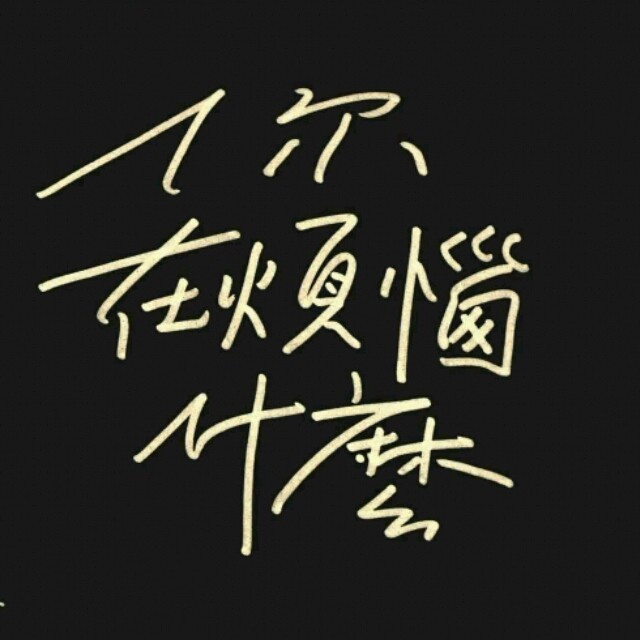 你
在煩惱
什麼